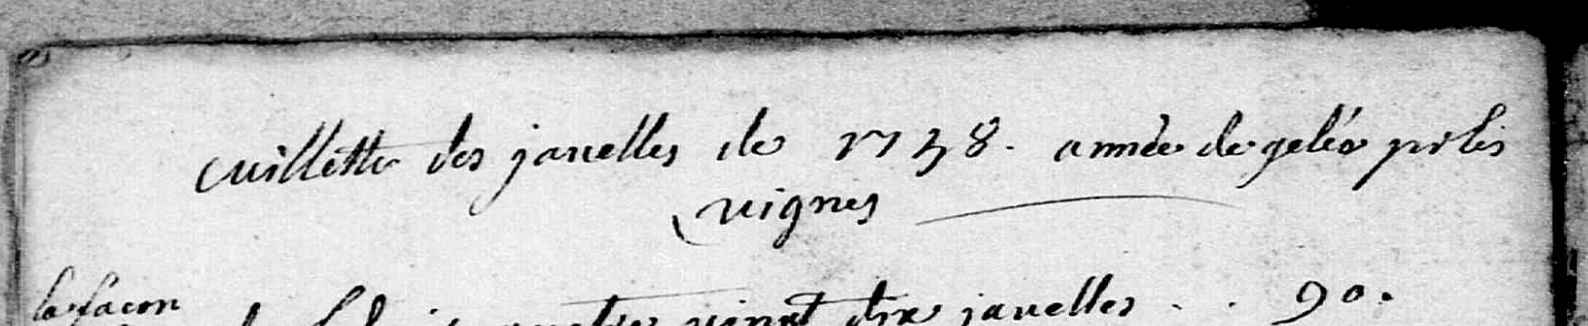 cuillette des javelles de 1738. année de gelée pr les
vignes
la façon
quatre vingt dix javelles . . 90.